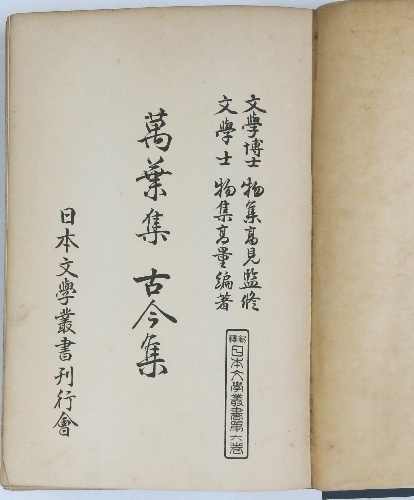 文學博士 物集高見監修
文學士 物集高量編著
新釋 日本文學叢書第六卷
萬葉集 古今集
日本文學叢書刊行會